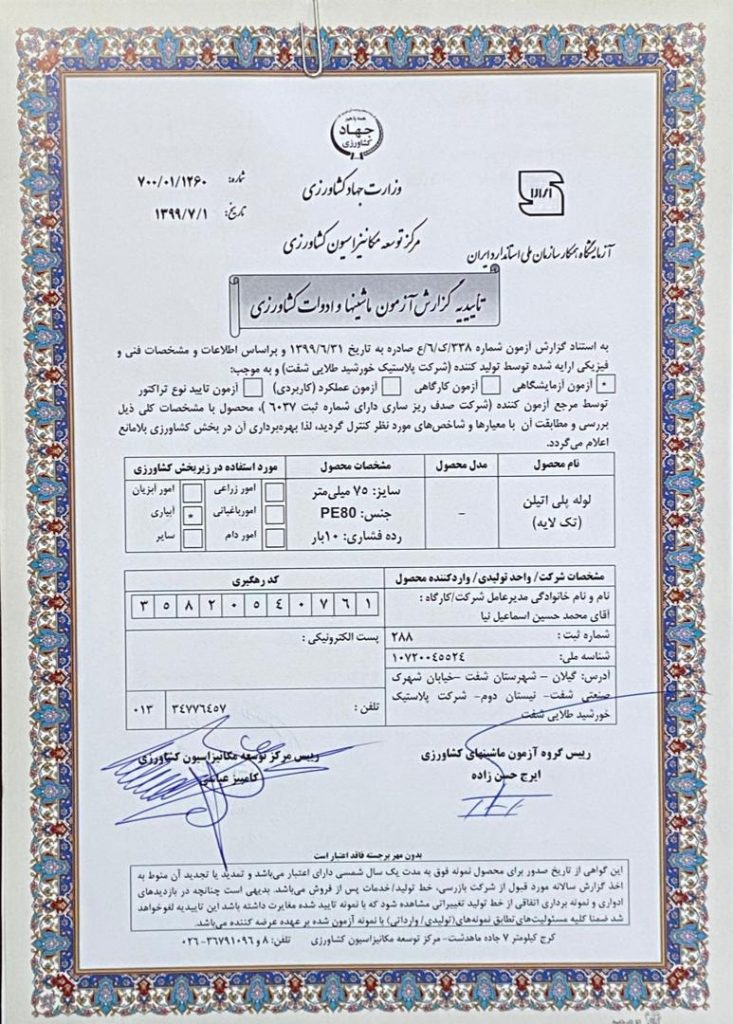 جهاد
کشاورزی
شماره: ۷۰۰/۰۱/۱۲۶۰
تاریخ: ۱۳۹۹/۷/۱
وزارت جهاد کشاورزی
مرکز توسعه مکانیزاسیون کشاورزی
آزمایشگاه همکار سازمان ملی استاندارد ایران
تاییدیه گزارش آزمون ماشینها و ادوات کشاورزی
به استناد گزارش آزمون شماره ۳۳۸/ک/۶/ع صادره به تاریخ ۱۳۹۹/۶/۳۱ و براساس اطلاعات و مشخصات فنی و
فیزیکی ارایه شده توسط تولید کننده (شرکت پلاستیک خورشید طلایی شفت) و به موجب:
آزمون آزمایشگاهی آزمون کارگاهی آزمون عملکرد (کاربردی) آزمون تایید نوع تراکتور
توسط مرجع آزمون کننده (شرکت صدف ریز ساری دارای شماره ثبت ۶۰۳۷ )، محصول با مشخصات کلی ذیل
بررسی و مطابقت آن با معیارها و شاخص‌های مورد نظر کنترل گردید، لذا بهره‌برداری آن در بخش کشاورزی بلامانع
اعلام می‌گردد.
نام محصول مدل محصول مشخصات محصول مورد استفاده در زیربخش کشاورزی
لوله پلی اتیلن
(تک لایه)
–
سایز: ۷۵ میلی‌متر
جنس: PE80
رده فشاری: ۱۰بار
امور زراعی امور آبزیان
امورباغبانی آبیاری
امور دام سایر
مشخصات شرکت/ واحد تولیدی/ واردکننده محصول
نام و نام خانوادگی مدیرعامل شرکت/کارگاه :
آقای محمد حسین اسماعیل نیا
شماره ثبت : ۲۸۸
شناسه ملی: ۱۰۷۲۰۰۴۵۵۲۴
آدرس: گیلان – شهرستان شفت –خیابان شهرک
صنعتی شفت- نیستان دوم- شرکت پلاستیک
خورشید طلایی شفت
کد رهگیری
۳ ۵ ۸ ۲ ۰ ۵ ٤ ۰ ۷ ۶ ۱
پست الکترونیکی :
تلفن : ۳٤۷۷٦٤۵۷ ۰۱۳
رییس گروه آزمون ماشینهای کشاورزی
ایرج حسن زاده
رییس مرکز توسعه مکانیزاسیون کشاورزی
کامبیز عباسی
بدون مهر برجسته فاقد اعتبار است
این گواهی از تاریخ صدور برای محصول نمونه فوق به مدت یک سال شمسی دارای اعتبار می‌باشد و تمدید یا تجدید آن منوط به
اخذ گزارش سالانه مورد قبول از شرکت بازرسی، خط تولید/خدمات پس از فروش می‌باشد. بدیهی است چنانچه در بازدیدهای
ادواری و نمونه برداری اتفاقی از خط تولید تغییراتی مشاهده شود که با نمونه تایید شده مغایرت داشته باشد این تاییدیه لغوخواهد
شد ضمنا کلیه مسئولیت‌های‌تطابق نمونه‌های(تولیدی/ وارداتی) با نمونه آزمون شده بر عهده عرضه کننده می‌باشد.
کرج کیلومتر ۷ جاده ماهدشت- مرکز توسعه مکانیزاسیون کشاورزی تلفن: ۸ و ۳۶۷۹۱۰۹۶-۰۲۶